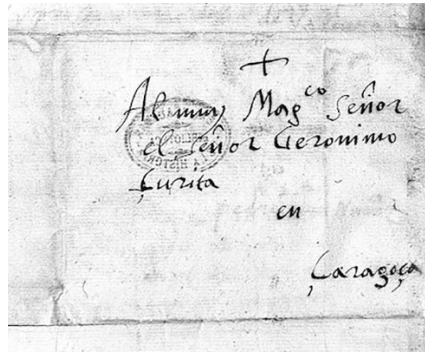 Al muy Mag.co Señor
el señor Geronimo
Çurita
en
Çaragoça